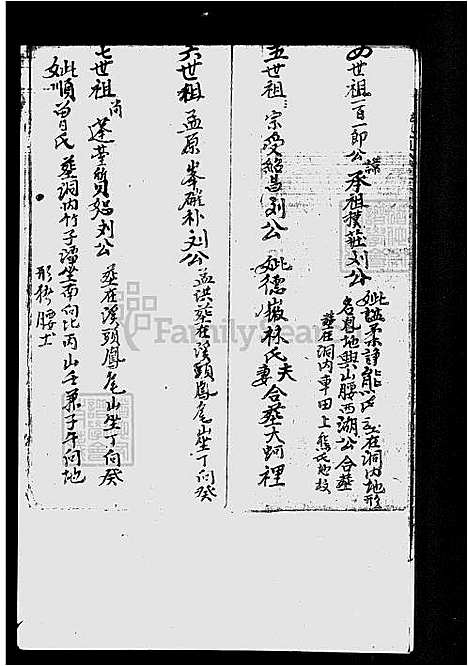 四世祖一百一郎公諱承祖樸莊刘公
妣諡柔靜熊氏 在洞内地形
名 地與山腰西湖公合葬
葬在洞内車田上 地坟
五世祖 宗受紹昌刘公 妣德嶶林氏夫妻合葬大蚵裡
六世祖孟原 峯 补刘公 孟洪葬在溪頭鳳尾山坐丁向癸
七世祖尚 蓬 刘公 葬在溪頭鳳尾山坐丁向癸
妣順曾氏葬洞内竹子潭坐南向北丙山壬兼子午向地
形 腰土
FamilySearch